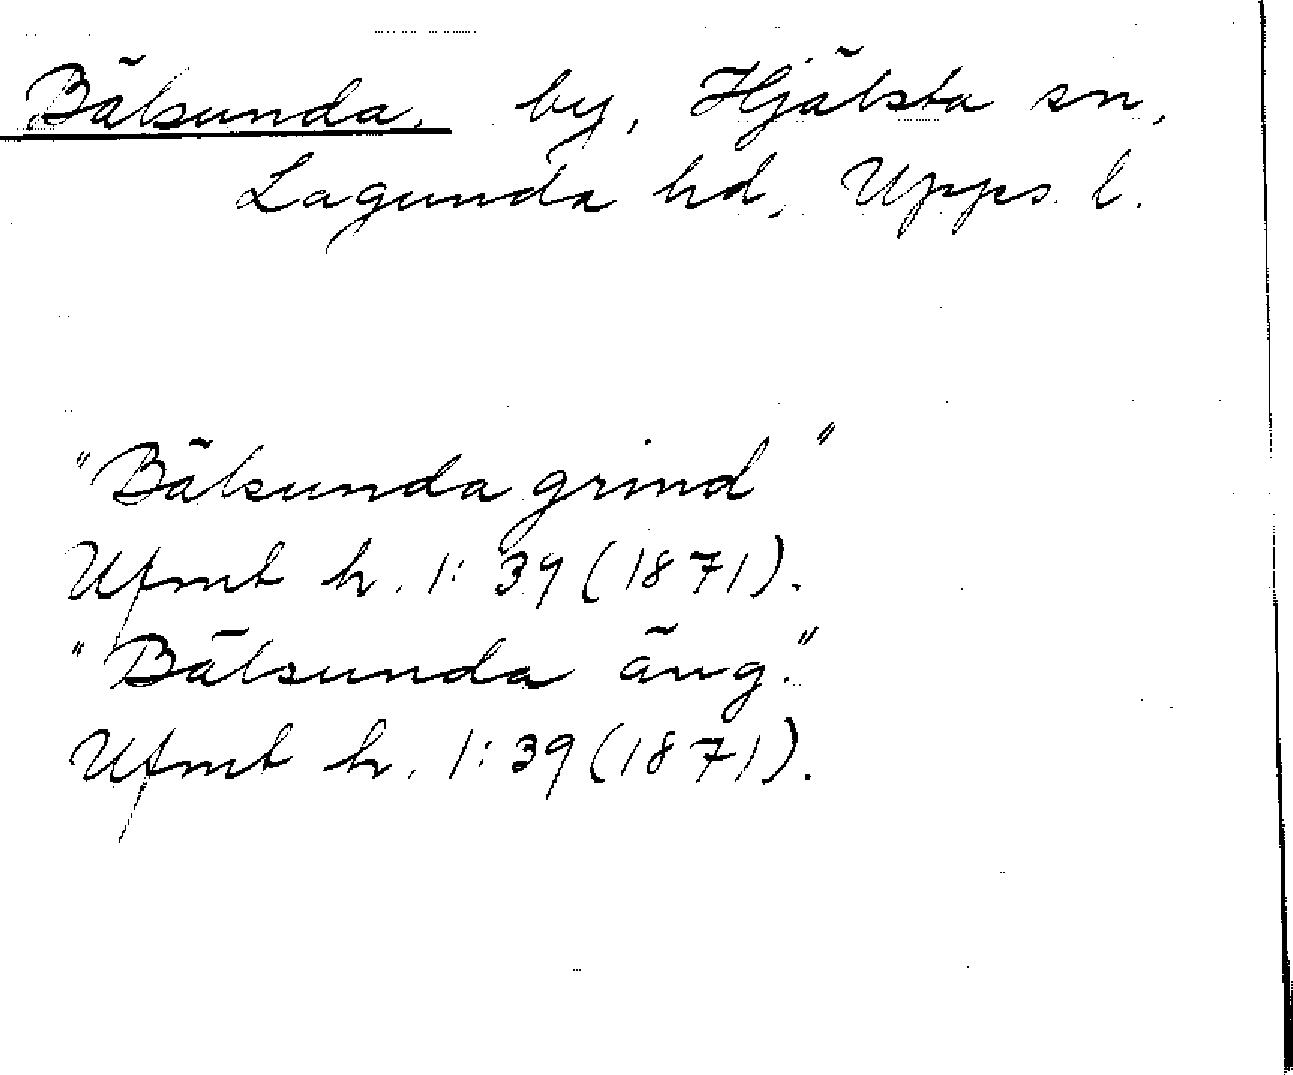 Bälsunda, by, Hjälsta sn,
Lagunda hd, Upps. l.
"Bälsunda grind"
Ufmt h. 1:39 (1871).
"Bälsunda äng."
Ufmt h. 1:39 (1871).